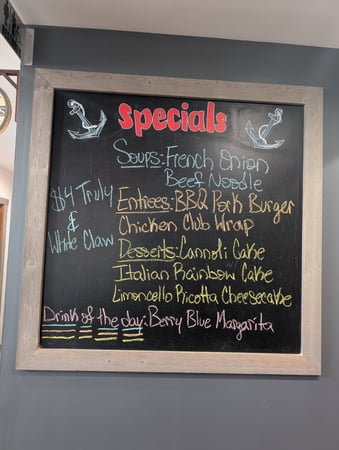 Specials
Soups: French Onion
Beef Noodle
$4 Truly
&
White Claw
Entrees: BBQ Pork Burger
Chicken Club Wrap
Desserts: Cannoli Cake
Italian Rainbow Cake
Limoncello Ricotta Cheesecake
Drink of the day: Berry Blue Margarita